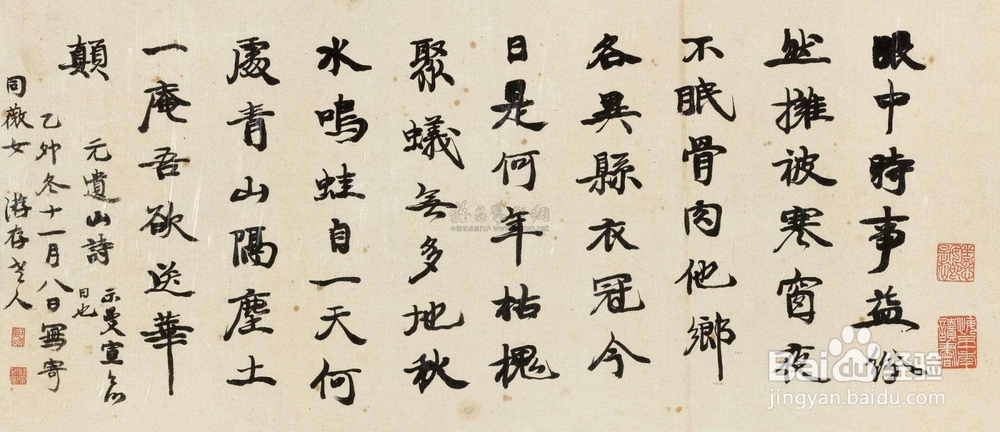 眼中時事益紛
然擁被寒窗夜
不眠骨肉他鄉
各異縣衣冠今
日是何年枯槐
聚蟻無多地秋
水鳴蛙自一天何
處青山隔塵土
一庵吾欲送華
顛
元遺山詩
示曼宣
日也
乙卯冬十一月八日寄
同薇女 游存老人
Baidu 经验
jingyan.baidu.com